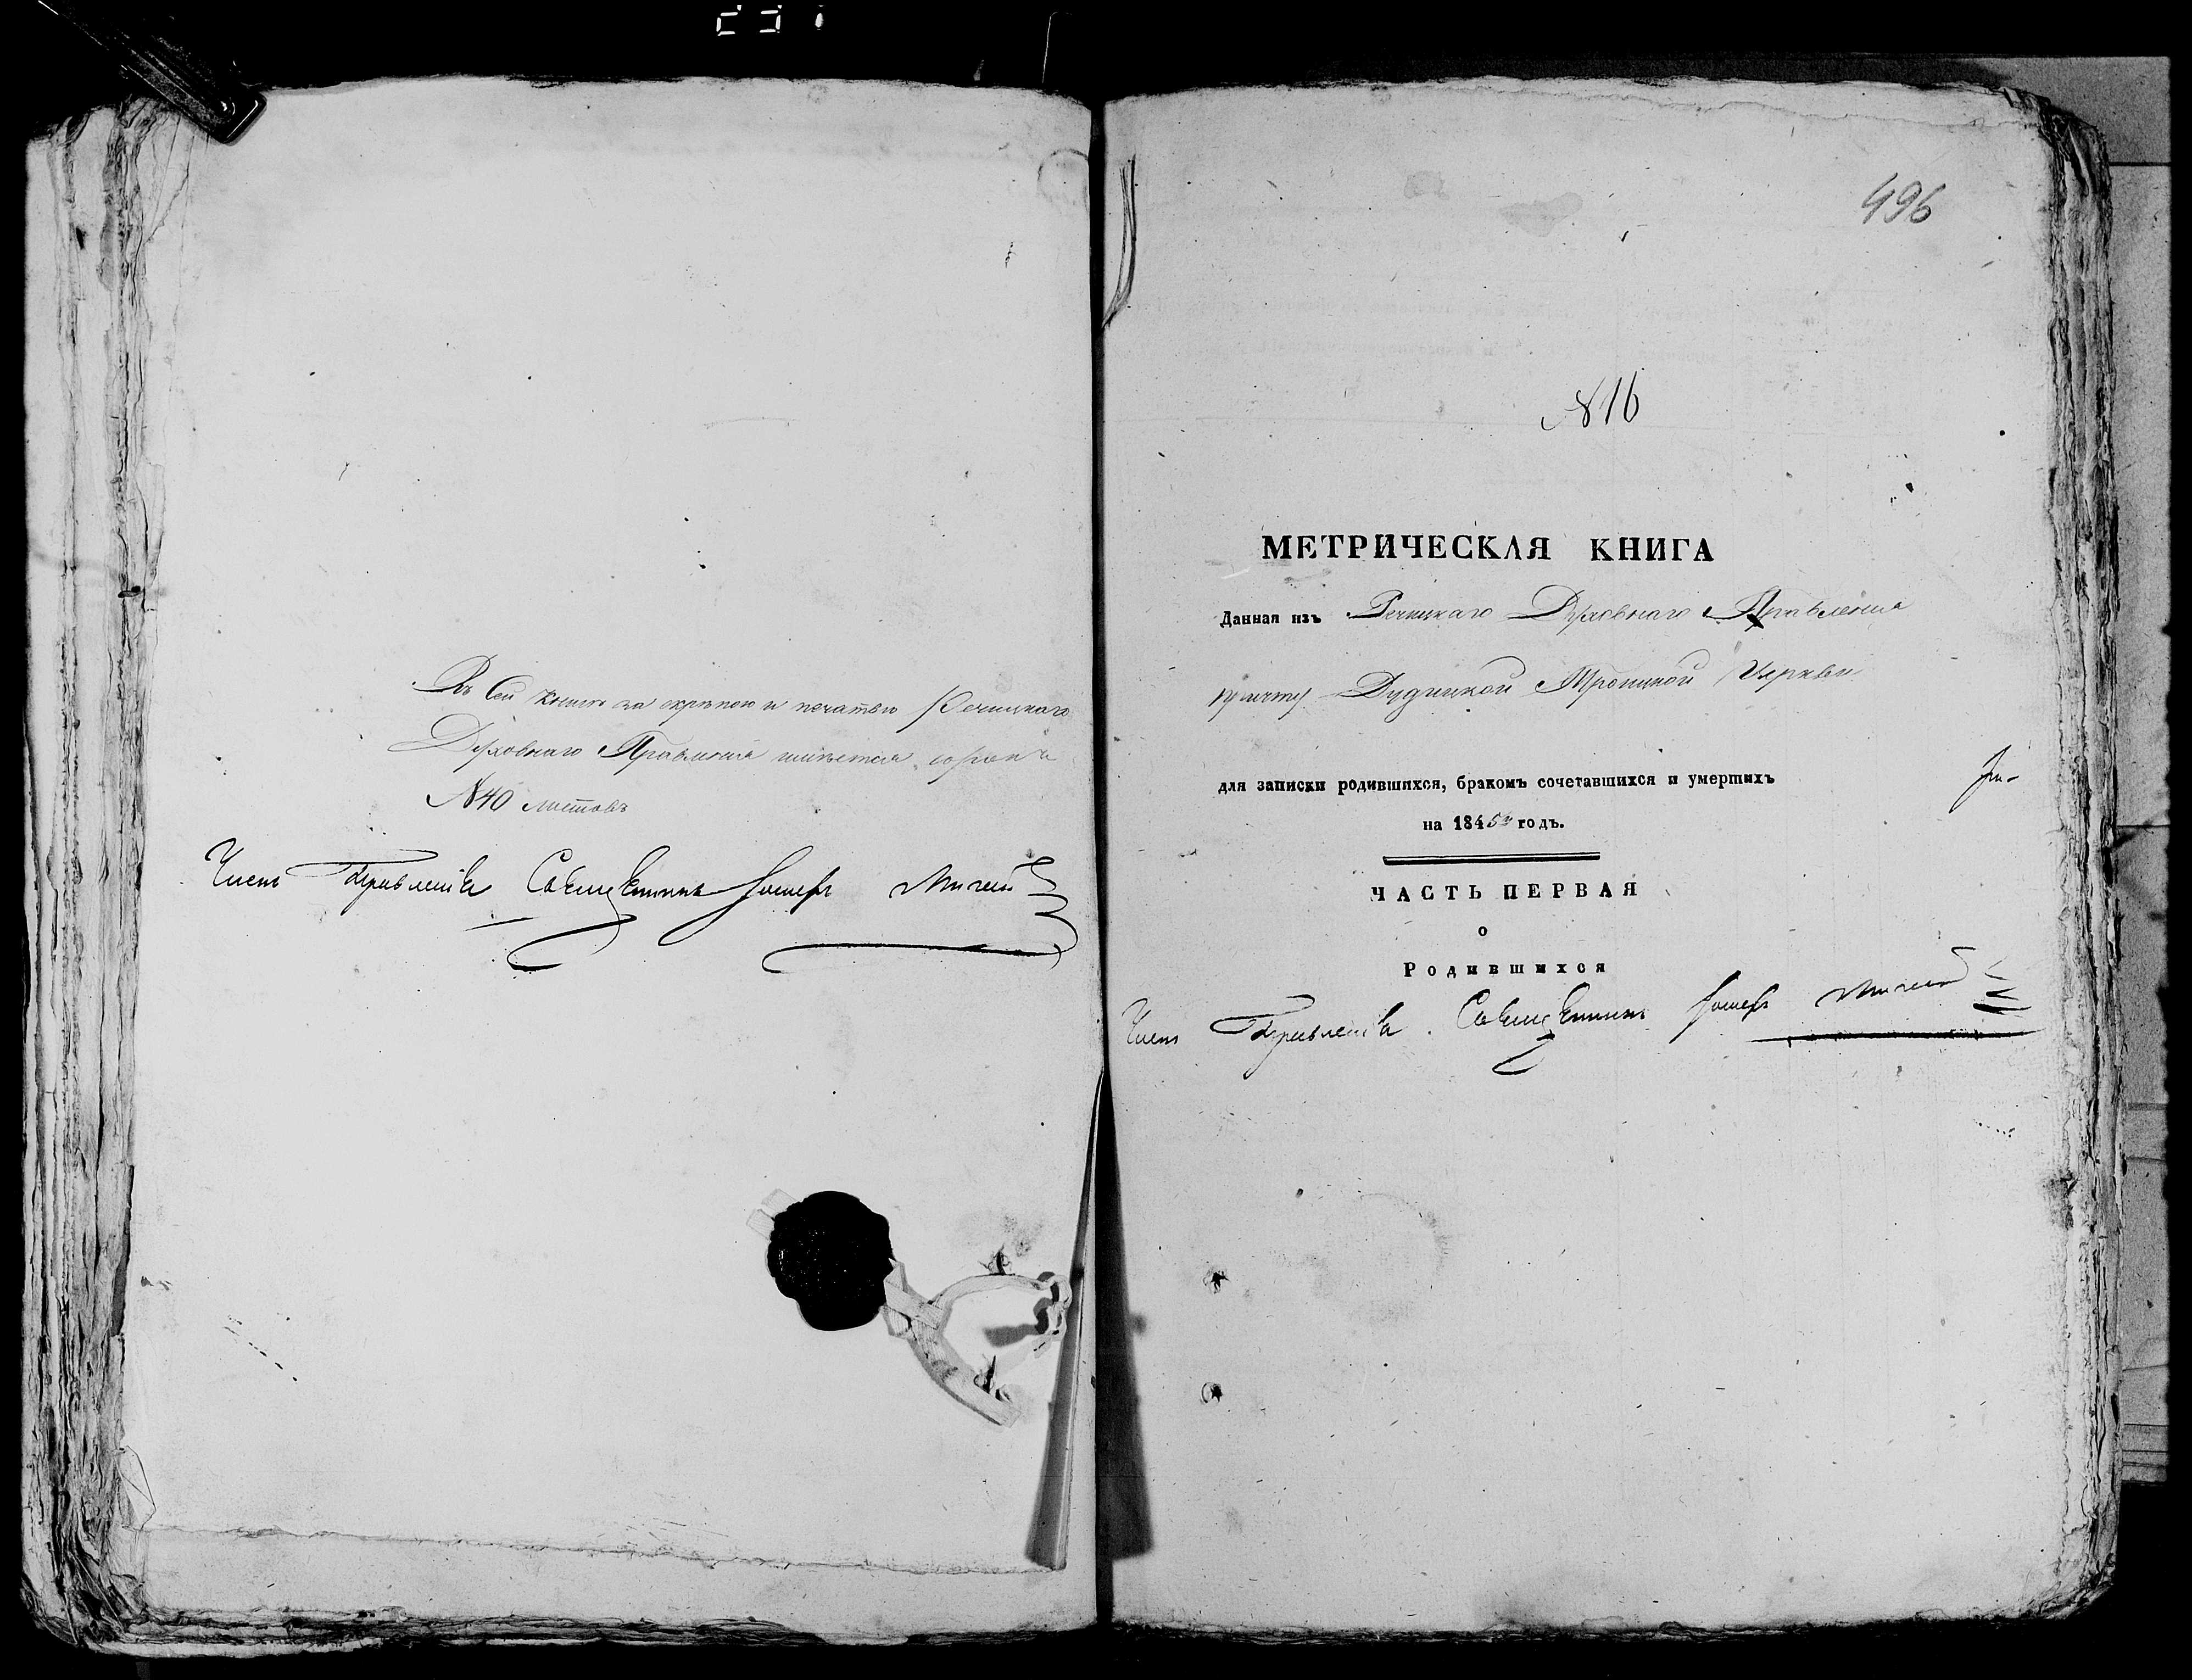 Въ Сей книгѣ за скрѣпою и печатью Речицкаго
Духовнаго Правленія имѣется сорокъ
№ 40 листовъ
Членъ Правленія Священникъ
496
№ 16
МЕТРИЧЕСКАЯ КНИГА
Данная изъ Речицкаго Духовнаго Правленія
причту Дудицкой Троицкой Церкви
для записки родившихся, бракомъ сочетавшихся и умершихъ
на 1845й годъ.
ЧАСТЬ ПЕРВАЯ
о
Родившихся
Членъ Правленія Священникъ